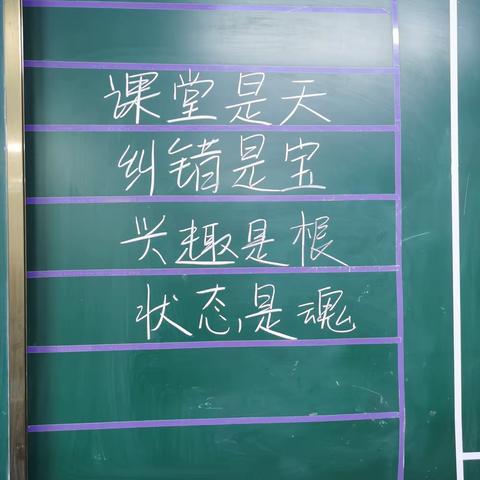 课堂是天
纠错是宝
兴趣是根
状态是魂